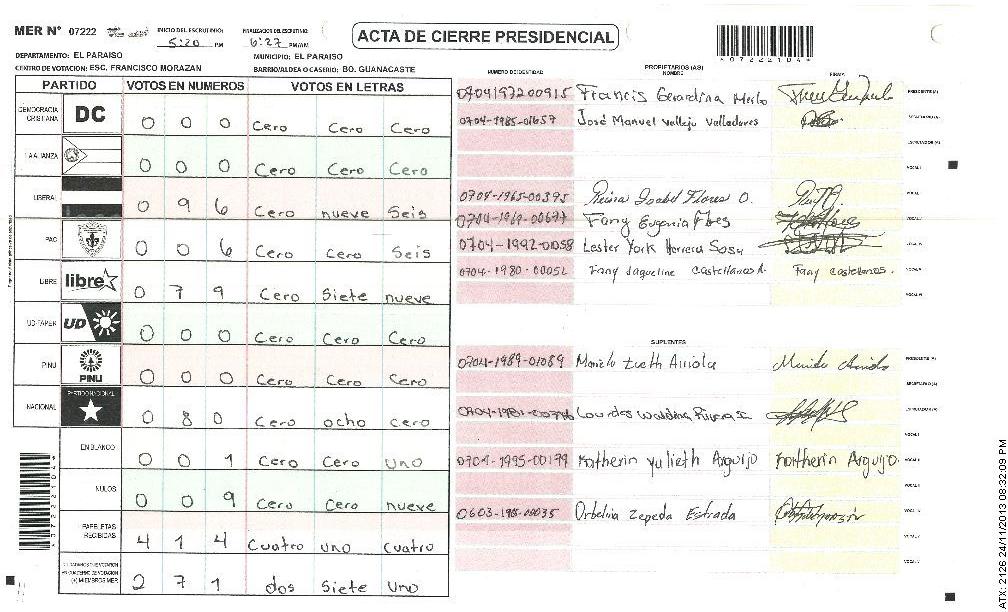 MER Nº 07222 INICIO DEL ESCRUTINIO: 5:20 PM FINALIZACION DEL ESCRUTINIO: 6:27 PM/AM
ACTA DE CIERRE PRESIDENCIAL
*07222104*
DEPARTAMENTO: EL PARAISO MUNICIPIO: EL PARAISO
CENTRO DE VOTACION: ESC. FRANCISCO MORAZAN BARRIO/ALDEA O CASERIO: BO. GUANACASTE
PARTIDO VOTOS EN NUMEROS VOTOS EN LETRAS
DEMOCRACIA CRISTIANA DC 0 0 0 Cero Cero Cero
LA ALIANZA 0 0 0 Cero Cero Cero
LIBERAL 0 9 6 Cero nueve Seis
PAC 0 0 6 Cero Cero Seis
LIBRE libre 0 7 9 Cero Siete nueve
UD-FAPER UD 0 0 0 Cero Cero Cero
PINU PINU 0 0 0 Cero Cero Cero
NACIONAL PARTIDO NACIONAL 0 8 0 Cero ocho cero
EN BLANCO 0 0 1 Cero Cero Uno
NULOS 0 0 9 Cero Cero nueve
PAPELETAS RECIBIDAS 4 1 4 Cuatro uno Cuatro
(+) MIEMBROS MER 2 7 1 dos Siete Uno
*07222104*
NUMERO DE IDENTIDAD PROPIETARIOS (AS) NOMBRE FIRMA
0704197200915 Francis Gerardina Merlo PRESIDENTE (A)
0704-1985-01657 José Manuel Vallejo Valladores SECRETARIO (A)
ESCRUTADOR (A)
VOCAL I
0704-1965-00395 Reina Isabel Flores O.
0704-1969-00677 Fany Eugenia Flores
0704-1992-01058 Lester York Herrera Sosa
0704-1980-00052 Fany Jaqueline Castellanos A. Fany castellanos.
SUPLENTES
0704-1989-01089 PRESIDENTE (A)
SECRETARIO (A)
Lourdes ESCRUTADOR (A)
0704-1995-00179 Katherin Yulieth Arguijo Katherin Arguijo.
Zepeda Estrada
ATX: 2126 24/11/2013 08:32:09 PM